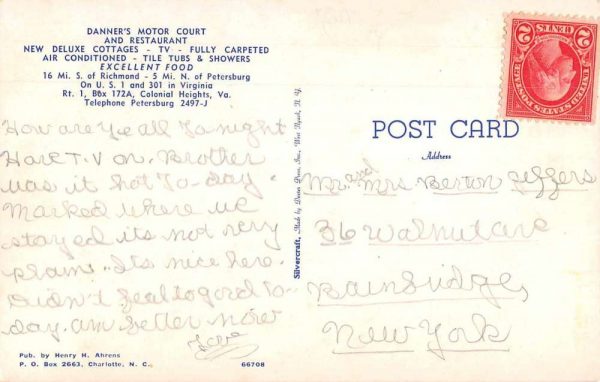 DANNER'S MOTOR COURT
AND RESTAURANT
NEW DELUXE COTTAGES - TV - FULLY CARPETED
AIR CONDITIONED - TILE TUBS & SHOWERS
EXCELLENT FOOD
16 Mi. S. of Richmond - 5 Mi. N. of Petersburg
On U. S. 1 and 301 in Virginia
Rt. 1, Box 172A, Colonial Heights, Va.
Telephone Petersburg 2497-J
How are ye all To night
Have T.V on. Brother
was it hot To-day.
Marked where we
stayed its not very
plain. Its nice here.
Didn't feal to good to-
day. am better now
Love
Pub. by Henry H. Ahrens
P. O. Box 2663, Charlotte, N. C.
66708
Silvercraft, Made by Dexter Press, Inc., West Nyack, N. Y.
UNITED STATES POSTAGE
2 CENTS 2
POST CARD
Address
Mr. and Mrs Berton Jeffers
36 Walnut ave
Bainbridge,
New York